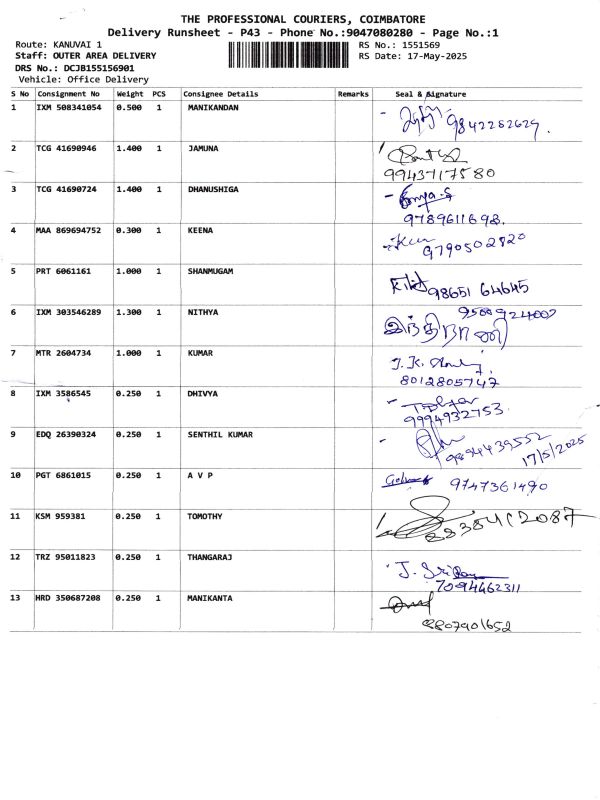 THE PROFESSIONAL COURIERS, COIMBATORE
Delivery Runsheet - P43 - Phone No.:9047080280 - Page No.:1
Route: KANUVAI 1 RS No.: 1551569
Staff: OUTER AREA DELIVERY RS Date: 17-May-2025
DRS No.: DCJB155156901
Vehicle: Office Delivery
S No Consignment No Weight PCS Consignee Details Remarks Seal & Signature
1 IXM 508341054 0.500 1 MANIKANDAN
9842252629.
2 TCG 41690946 1.400 1 JAMUNA
9943717580
3 TCG 41690724 1.400 1 DHANUSHIGA
9789611698.
4 MAA 869694752 0.300 1 KEENA
9790502820
5 PRT 6061161 1.000 1 SHANMUGAM
98651 64645
6 IXM 303546289 1.300 1 NITHYA
இந்திராணி
7 MTR 2604734 1.000 1 KUMAR
8012805747
8 IXM 3586545 0.250 1 DHIVYA
9994932753.
9 EDQ 26390324 0.250 1 SENTHIL KUMAR
9894439552
17/5/2025
10 PGT 6861015 0.250 1 A V P
9747361490
11 KSM 959381 0.250 1 TOMOTHY
12 TRZ 95011823 0.250 1 THANGARAJ
7094462311
13 HRD 350687208 0.250 1 MANIKANTA
8807901652